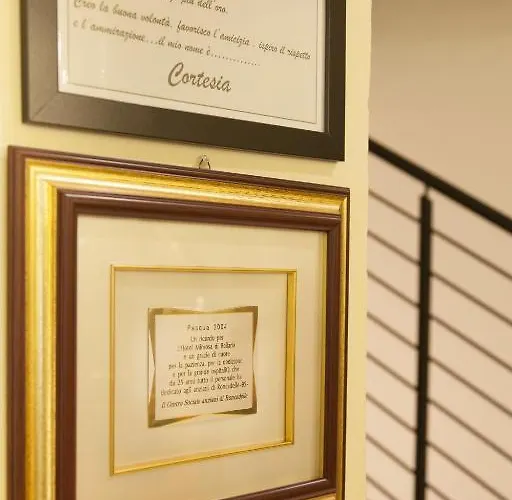 più dell'oro.
Creo la buona volontà, favorisco l'amicizia, ispiro il rispetto
e l'ammirazione...il mio nome è.............
Cortesia
Pasqua 2004
Un ricordo per
l'Hotel Mimosa di Bellaria
e un grazie di cuore
per la pazienza, per la dedizione
e per la grande ospitalità che
da 25 anni tutto il personale ha
dedicato agli anziani di Roncadelle-BS-
Il Centro Sociale anziani di Roncadelle